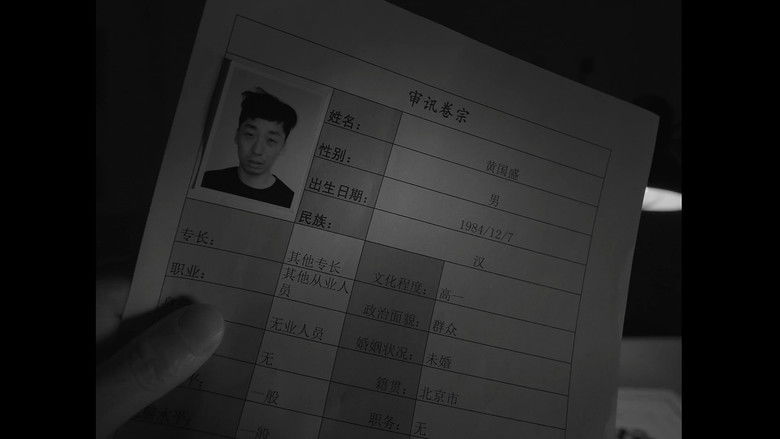 审讯卷宗
姓名： 黄国盛
性别： 男
出生日期： 1984/12/7
民族： 汉
专长： 其他专长 文化程度： 高一
职业： 其他从业人员 政治面貌： 群众
无业人员 婚姻状况： 未婚
无 籍贯： 北京市
一般 职务： 无
水平： 一般